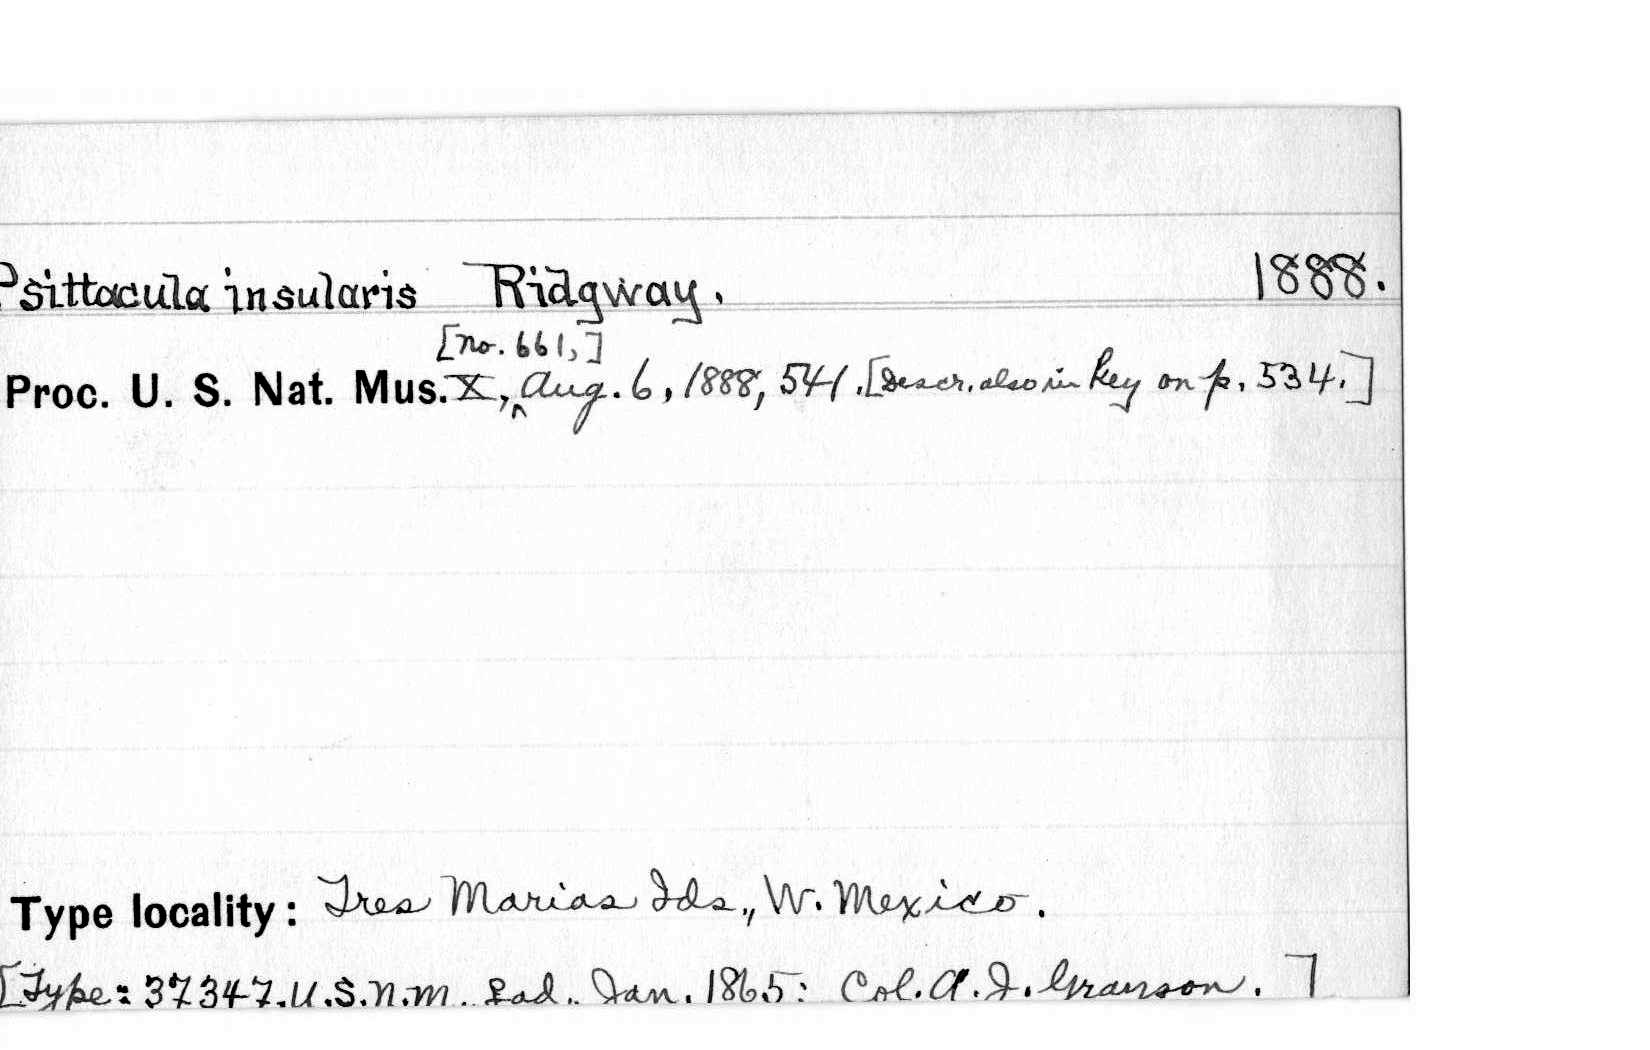 Psittacula insularis Ridgway. 1888.
[no. 661,]
Proc. U. S. Nat. Mus. X, ^ Aug. 6, 1888, 541. [Descr. also in key on p. 534.]
Type locality: Tres Marias Ids., W. Mexico.
[Type: 37347. U.S.N.M. ad. Jan. 1865: Col. A. J. Grayson.]